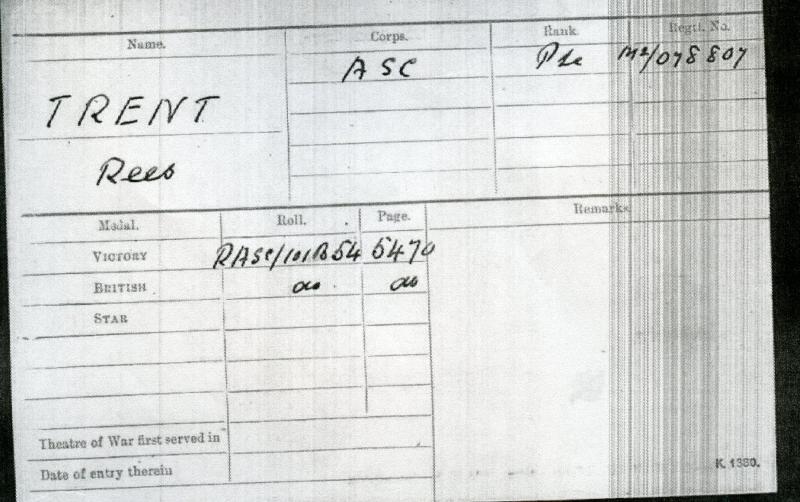 Name. Corps. Rank. Regtl. No.
A S C Pte M2/078807
TRENT
Rees
Medal. Roll. Page. Remarks.
VICTORY RASC/101B54 5470
BRITISH do do
STAR
Theatre of War first served in
Date of entry therein
K. 1380.